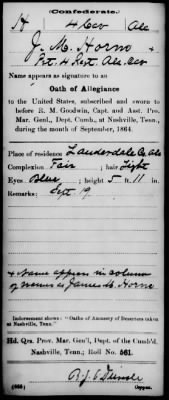 (Confederate.)
H 4 Cav Ala
J. M. Horne +
Pvt. 4 Regt. Ala. Cav
Name appears as signature to an
Oath of Allegiance
to the United States, subscribed and sworn to
before R. M. Goodwin, Capt. and Asst. Pro.
Mar. Genl., Dept. Cumb., at Nashville, Tenn.,
during the month of September, 1864.
Place of residence Lauderdale Co Ala
Complexion Fair ; hair Light
Eyes Blue ; height 5 ft. 11 in.
Remarks: Sept 19
+ Name appears in column
of names as James M. Horne
Indorsement shows: "Oaths of Amnesty of Deserters taken
at Nashville, Tenn."
Hd. Qrs. Prov. Mar. Gen'l, Dept. of the Cumb'd,
Nashville, Tenn.; Roll No. 561.
Copyist.